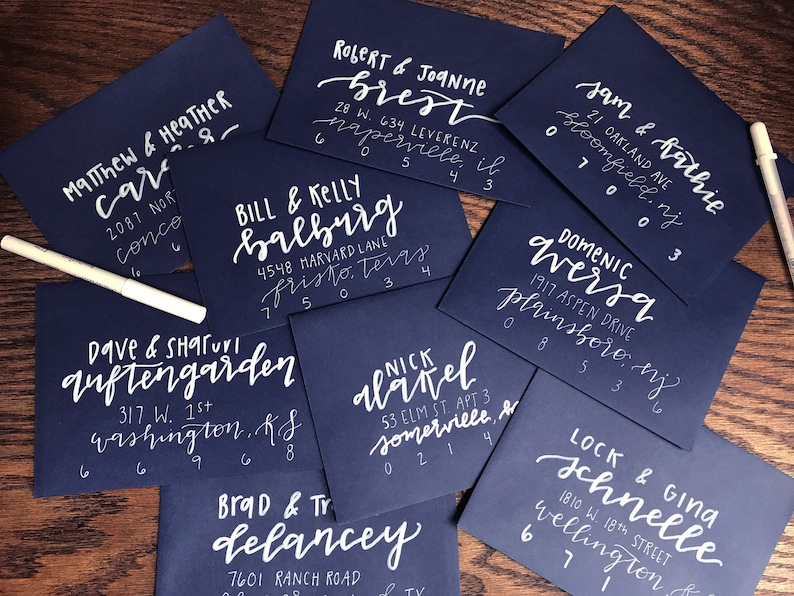 Robert & Joanne
brest
28 W. 634 LEVERENZ
naperville, il
6 0 5 4 3
Sam & Kathie
21 OAKLAND AVE
bloomfield, nj
0 7 0 0 3
Matthew & Heather
2087 NOR
conco
6 6
BILL & KELLY
balburg
4548 HARVARD LANE
frisko, texas
7 5 0 3 4
DOMENIC
aversa
1917 ASPEN DRIVE
plainsboro, nj
0 8 5 3 6
Dave & Sharon
auftengarden
317 W. 1st
washington, KS
6 6 9 6 8
NICK
alakel
53 ELM ST. APT 3
somerville,
0 2 1 4
LOCK & GINA
schnelle
1810 W. 18th STREET
wellington, K
6 7 1
Brad & Tr
delancey
7601 RANCH ROAD